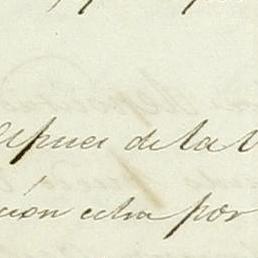 despues de la
cion echa por